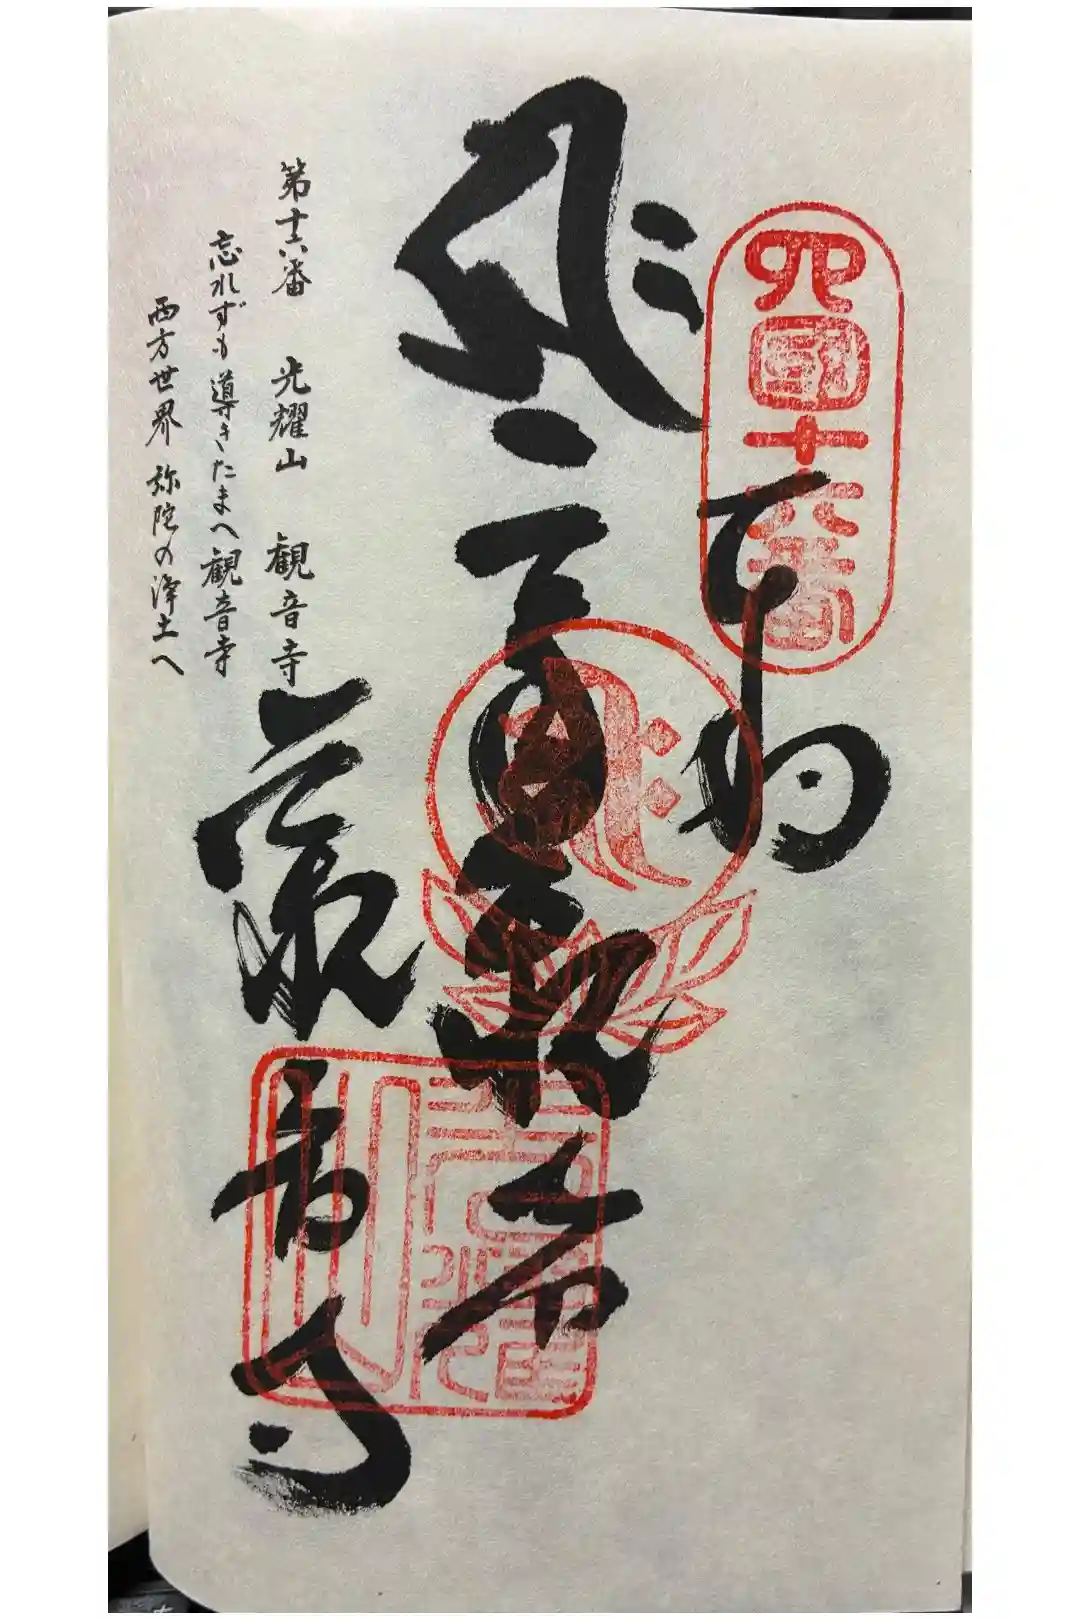 四國十六番
奉納
光耀山
観音寺
第十六番 光耀山 観音寺
忘れずも導きたまへ観音寺
西方世界 弥陀の浄土へ